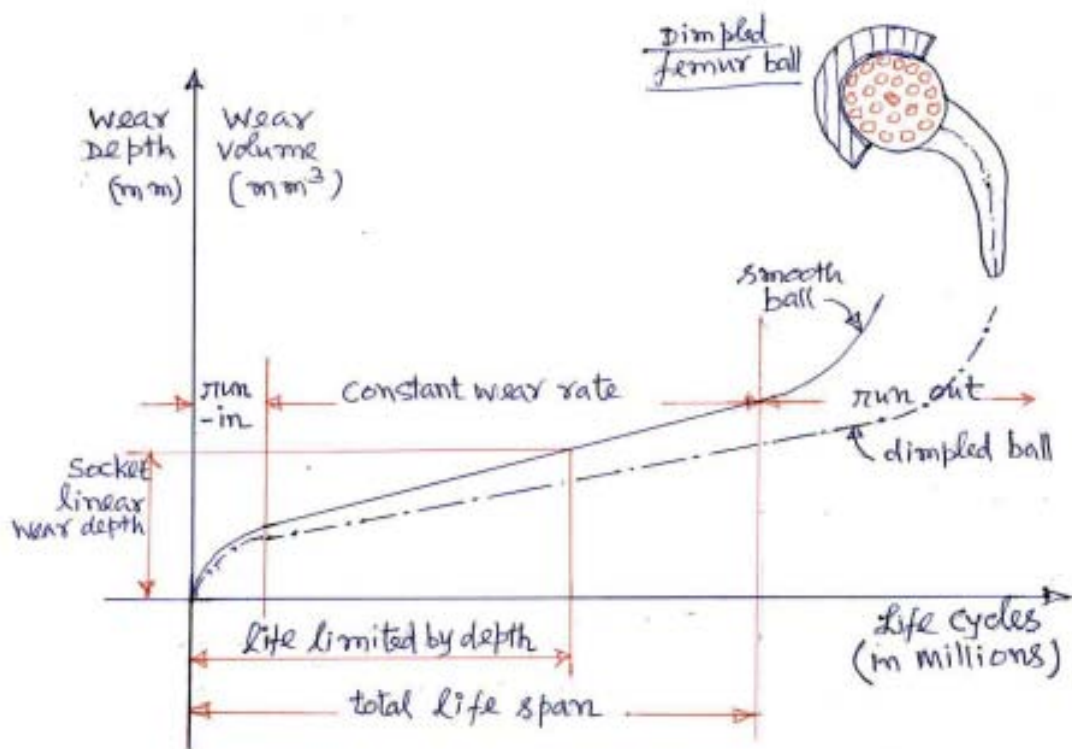 Dimpled
femur ball
Wear
Depth
(mm)
Wear
Volume
(mm³)
smooth
ball
run
-in
constant wear rate
run out
dimpled ball
Socket
linear
wear depth
life limited by depth
Life cycles
(in millions)
total life span